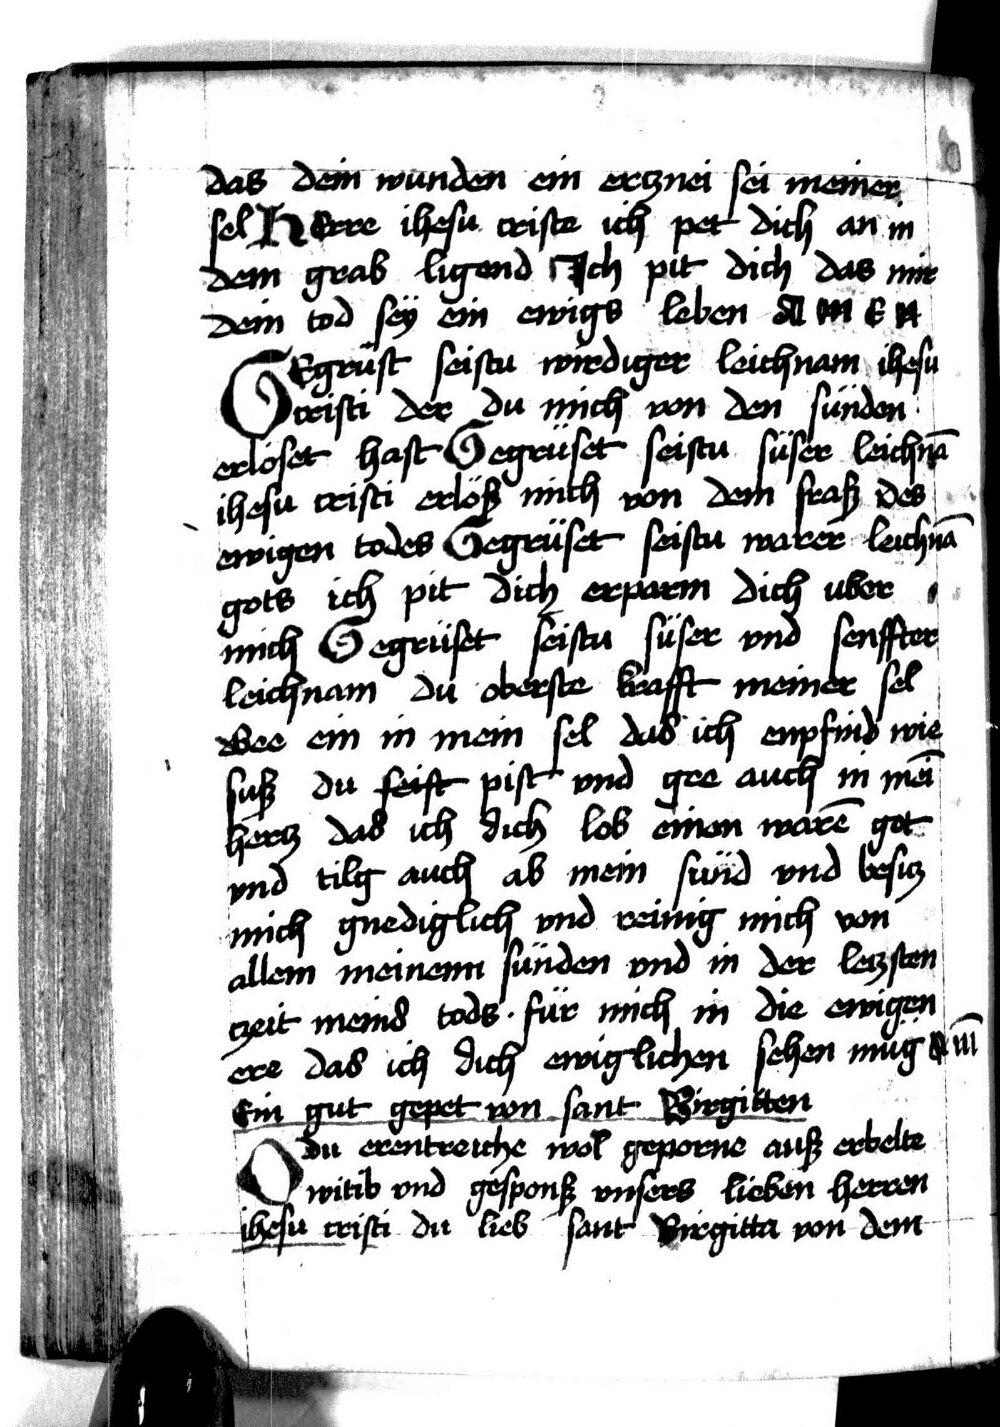 das dein wunden ein ertznei sei meiner
sel HErre ihesu criste ich pet dich an in
dem grab ligend Ich pit dich das mir
dein tod seÿ ein ewigs leben AMEN
GEgrüst seistu wirdiger leichnam ihesu
cristi der du mich von den sünden
erlöset hast Gegrüset seistu süser leichnā
ihesu cristi erlöß mich von dem fraß des
ewigen todes Gegrüset seistu warer leichnā
gots ich pit dich erparm dich uber
mich Gegrüset seistu süser vnd senffter
leichnam du oberste krafft meiner sel
Gee ein in mein sel das ich enpfind wie
suß du seist pist vnd gee auch in mei̅
hertz das ich dich lob einen ware̅ got
vnd tilg auch ab mein sünd vnd besitz
mich gnediglich vnd reinig mich von
allem meinenn sünden vnd in der letzsten
zeit meins tods · für mich in die ewigen
ere das ich dich ewiglichen sehen müg am̅
Ein gut gepet von sant Birgitten
O du erentreiche wol geporne auß erbelte
witib vnd gesponß vnsers lieben herren
ihesu cristi du lieb sant Birgitta von dem